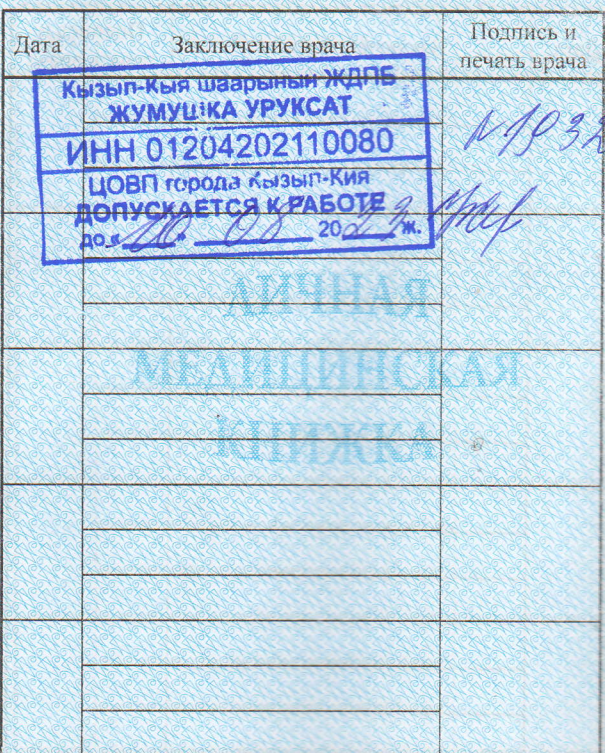 Дата Заключение врача Подпись и печать врача
Кызыл-Кыя шаарынын ЖДПБ
ЖУМУШКА УРУКСАТ
№ 1932
ИНН 01204202110080
ЦОВП города Кызыл-Кия
ДОПУСКАЕТСЯ К РАБОТЕ
до « 10 » 08 20 ж.
ЛИЧНАЯ
МЕДИЦИНСКАЯ
КНИЖКА